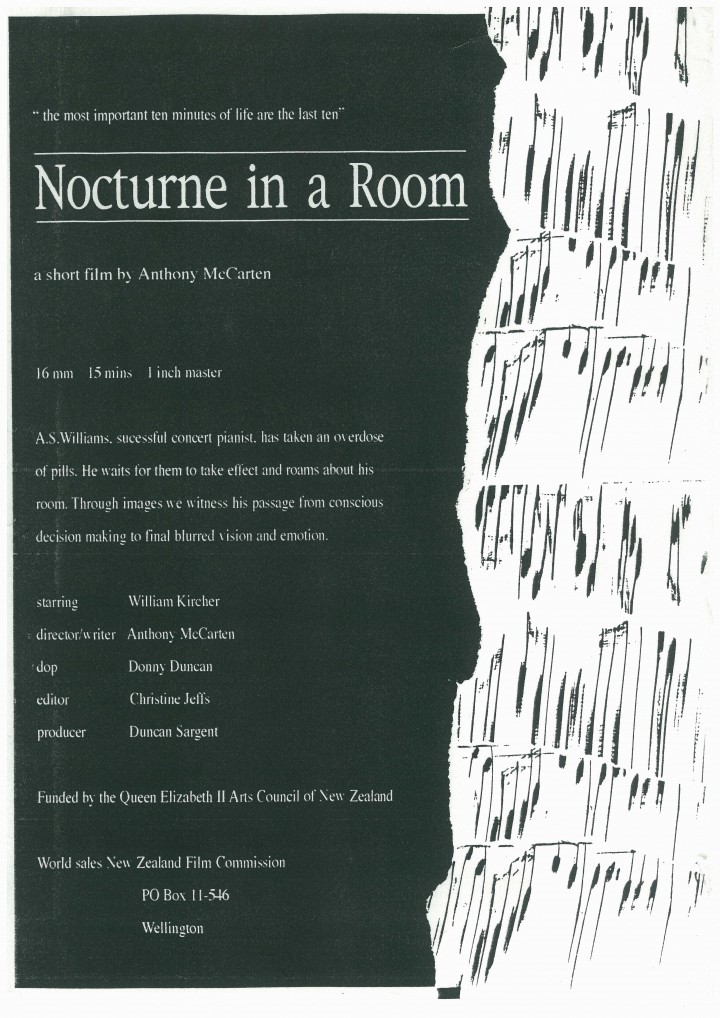 “ the most important ten minutes of life are the last ten”
Nocturne in a Room
a short film by Anthony McCarten
16 mm 15 mins 1 inch master
A.S.Williams, sucessful concert pianist, has taken an overdose
of pills. He waits for them to take effect and roams about his
room. Through images we witness his passage from conscious
decision making to final blurred vision and emotion.
starring William Kircher
director/writer Anthony McCarten
dop Donny Duncan
editor Christine Jeffs
producer Duncan Sargent
Funded by the Queen Elizabeth II Arts Council of New Zealand
World sales New Zealand Film Commission
PO Box 11-546
Wellington